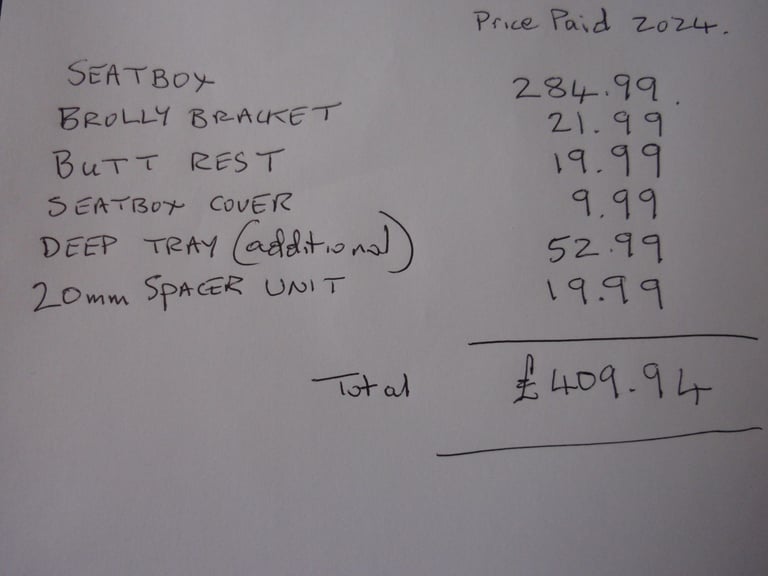 Price Paid 2024.
SEATBOX 284.99.
BROLLY BRACKET 21.99
BUTT REST 19.99
SEATBOX COVER 9.99
DEEP TRAY (additional) 52.99
20mm SPACER UNIT 19.99
Total £409.94